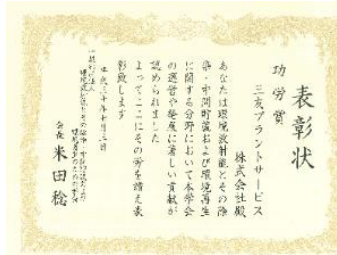 表彰状
功労賞
三友プラントサービス
株式会社殿
あなたは環境放射能とその除
染・中間貯蔵および環境再生
に関する分野において本学会
の運営や発展に著しい貢献が
認められました
よってここにその労を讃え表
彰致します
平成三十年七月三日
一般社団法人
環境放射能とその除染・中間貯蔵および
環境再生のための学会
会長 米田稔